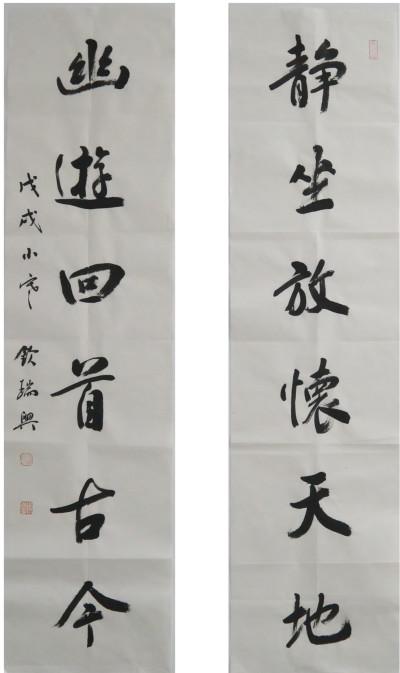 静坐放懷天地
幽遊回首古今
戊戌小寒 欽瑞興